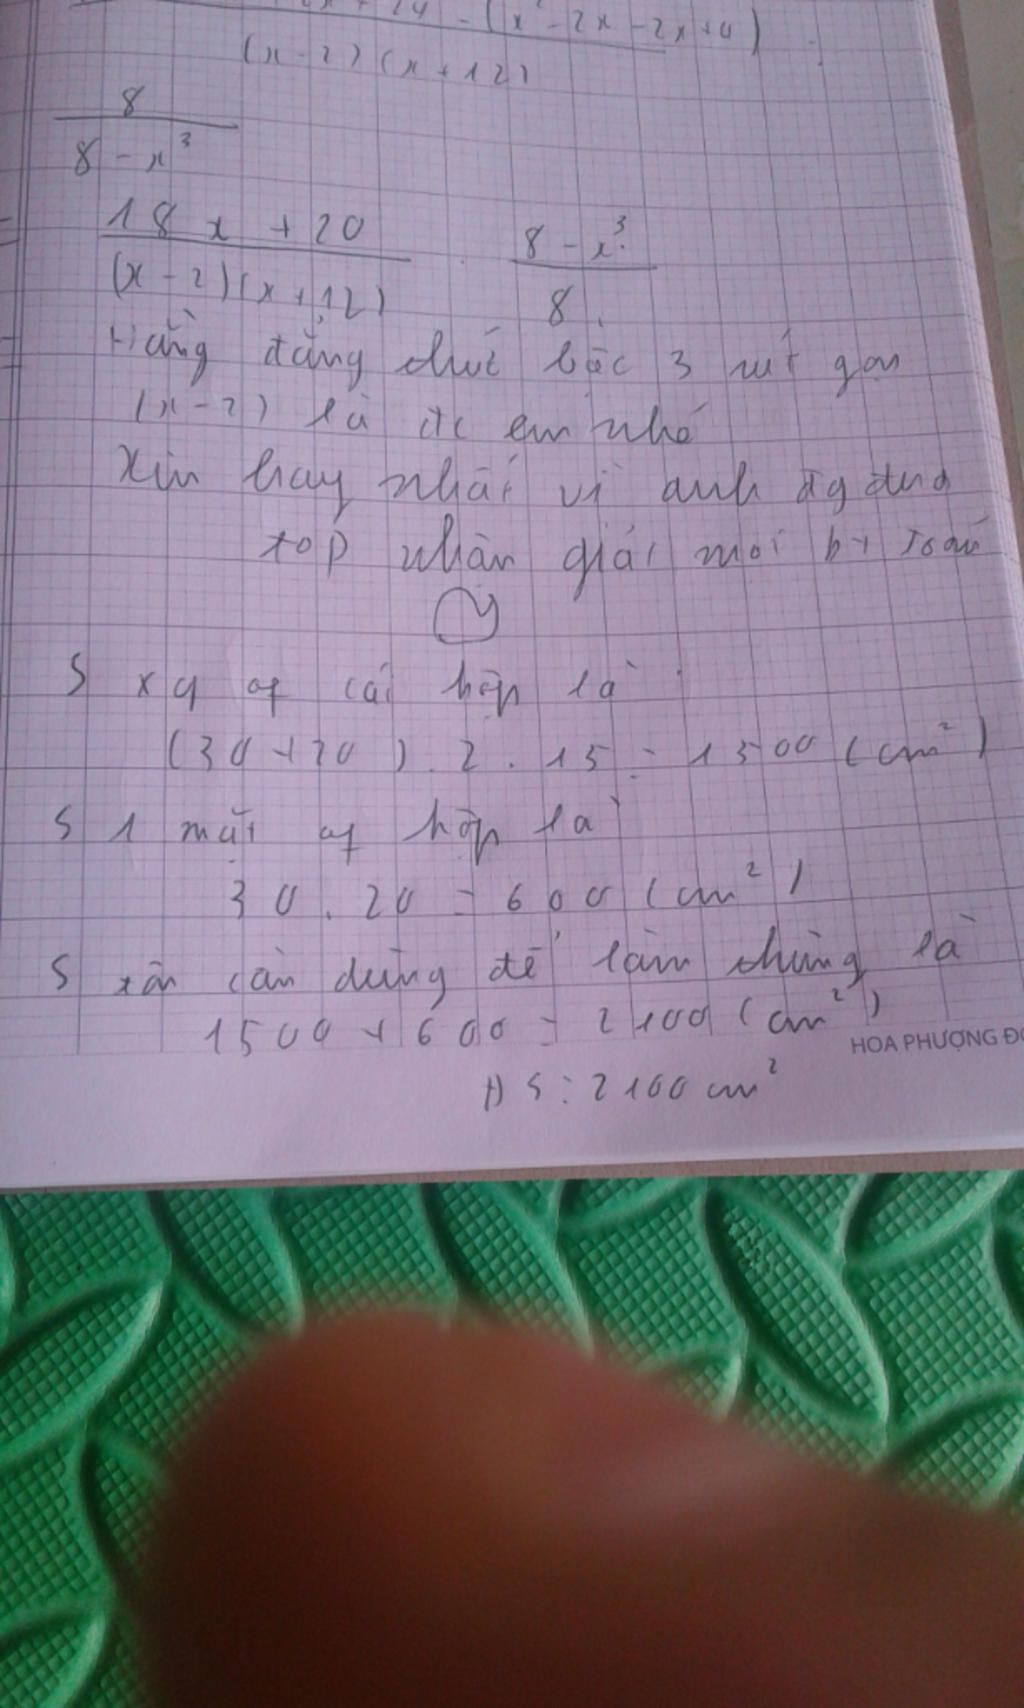 24 - (x² - 2x - 2x + 4)
(x - 2) (x + 12)
8
8 - x³
18x + 20
(x - 2)(x + 12) . 8 - x³
8
Hằng đẳng thức bậc 3 rút gọn
(x - 2) là đc em nhé
Xin hay nhất vì anh đg đua
top nhận giải mọi
S xq of cái hộp là
(30 + 20) . 2 . 15 = 1500 (cm²)
S 1 mặt of hộp là
30 . 20 = 600 (cm²)
S tôn cần dùng để làm thùng là
1500 + 600 = 2100 (cm²)
HOA PHƯỢNG
ĐS : 2100 cm²